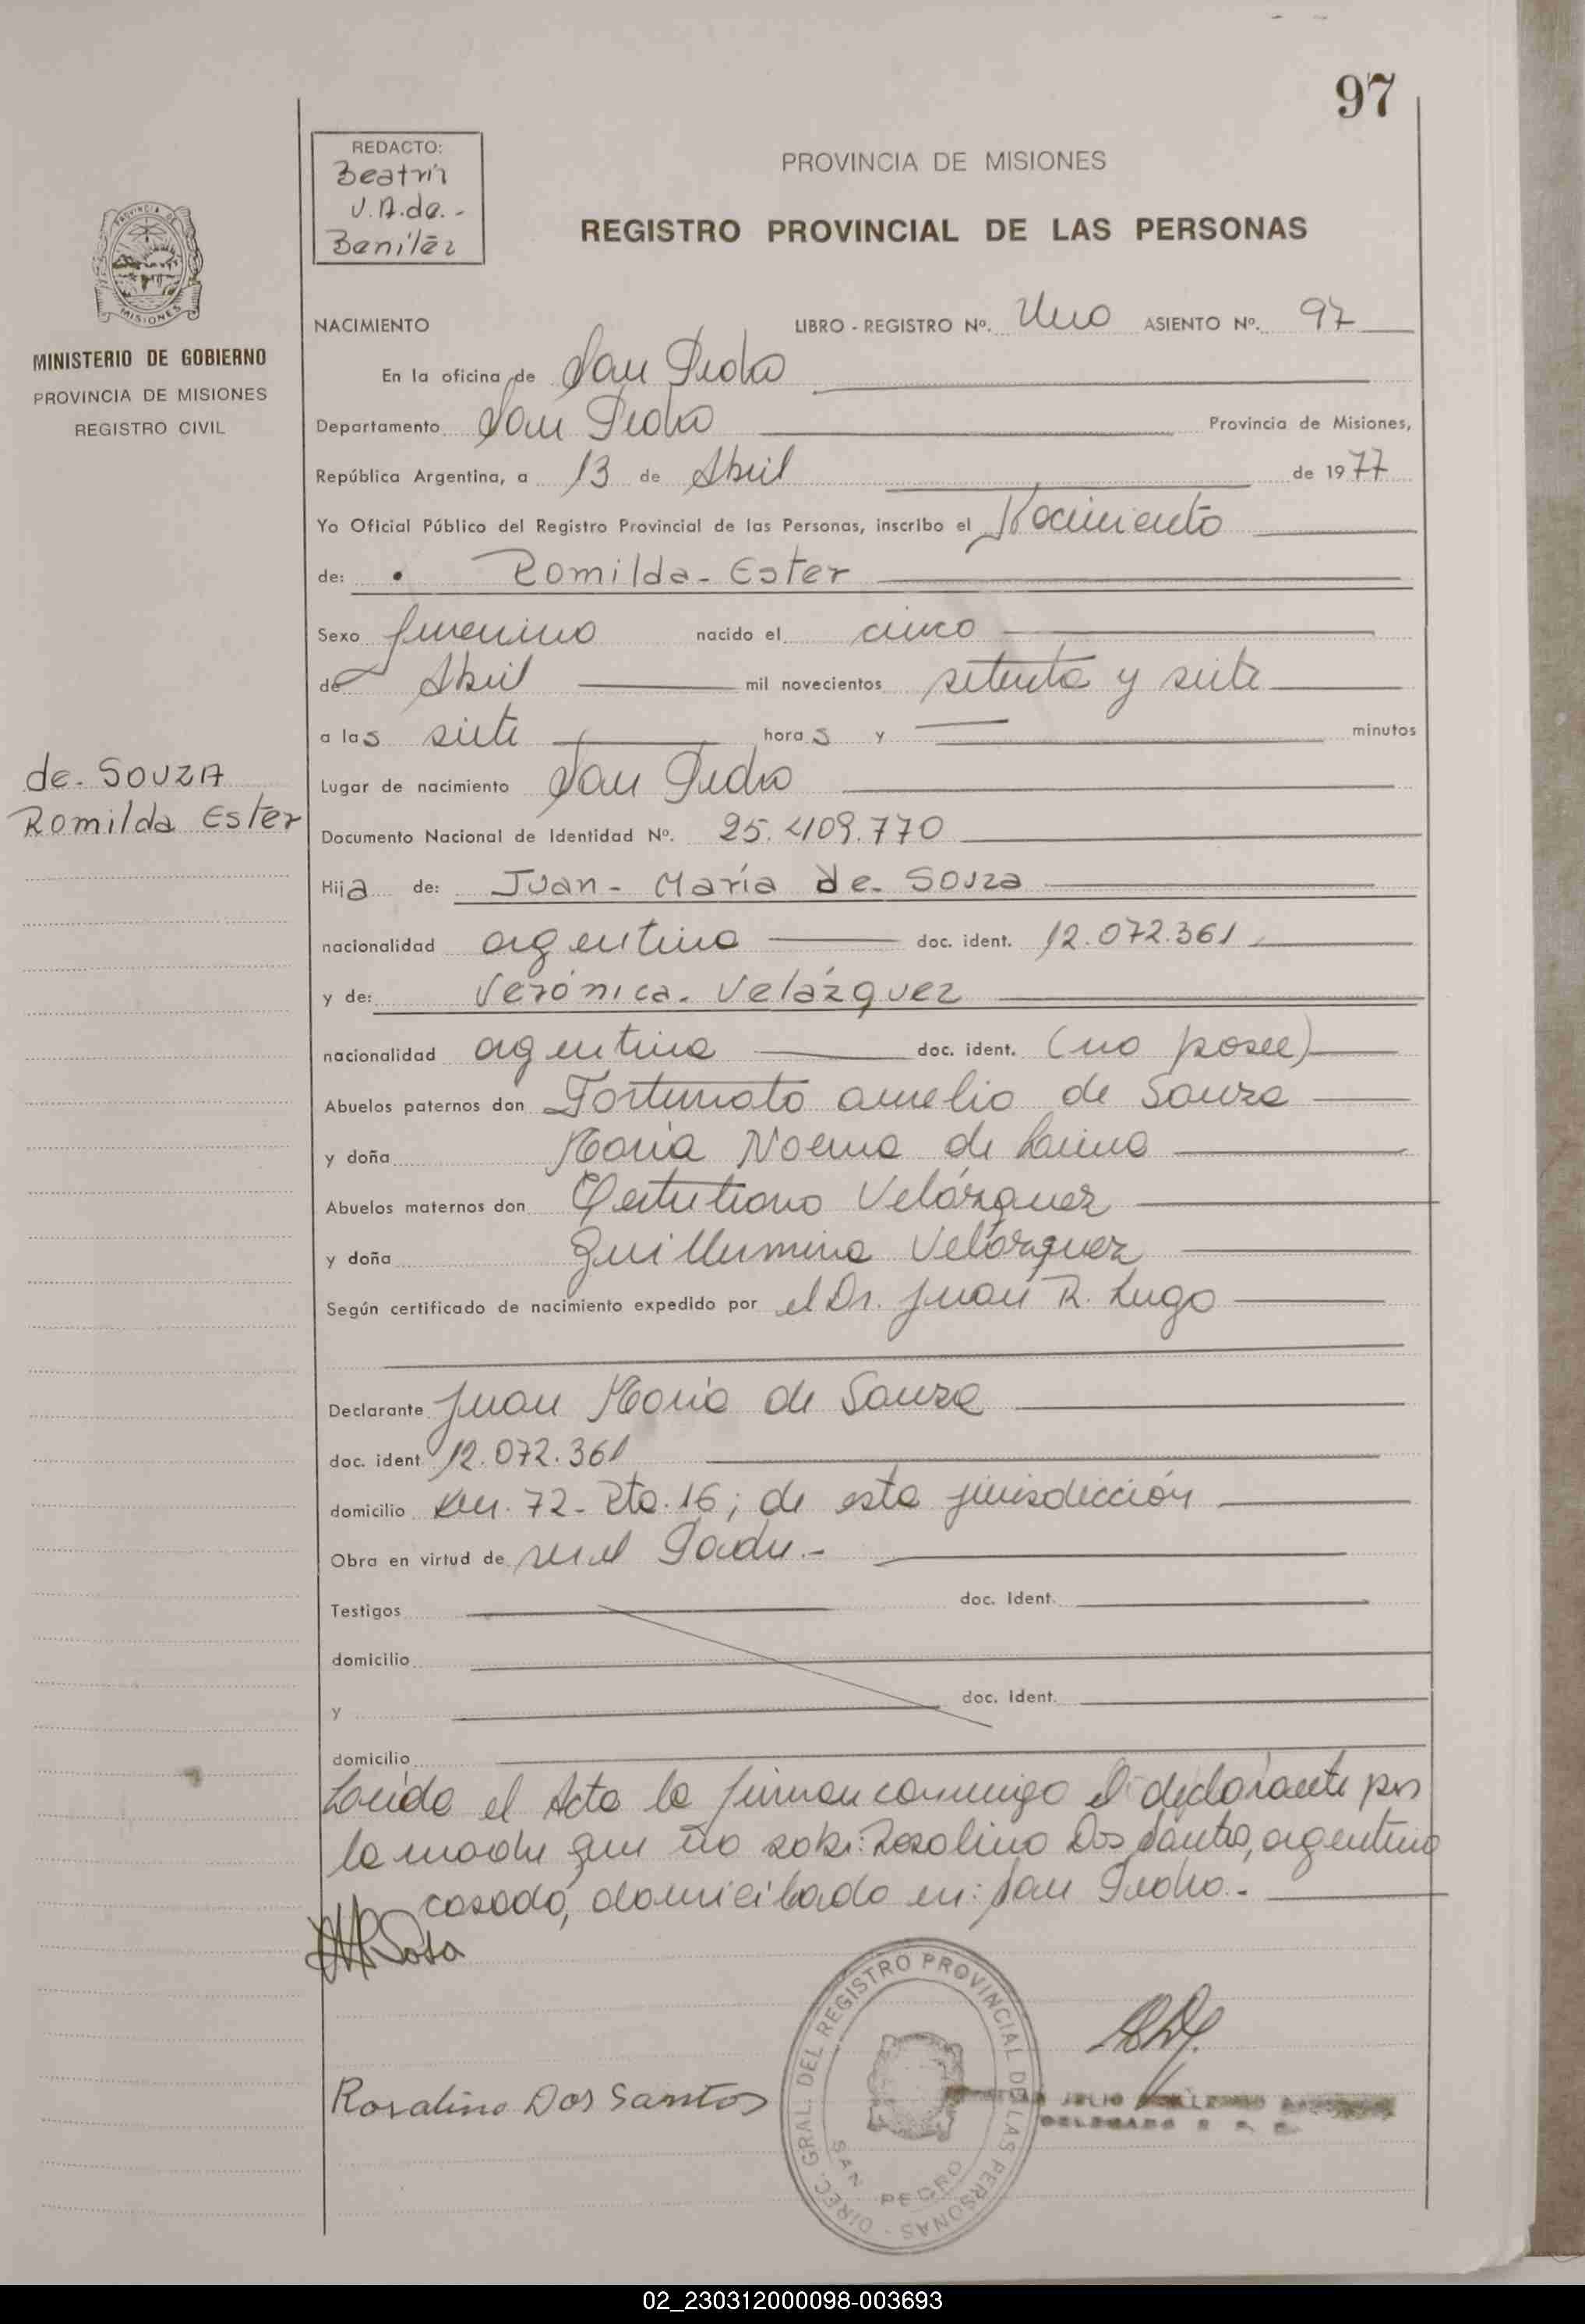 97
REDACTO:
Beatriz
V.A.de.-
Benítez
PROVINCIA DE MISIONES
REGISTRO PROVINCIAL DE LAS PERSONAS
MISIONES
MINISTERIO DE GOBIERNO
PROVINCIA DE MISIONES
REGISTRO CIVIL
NACIMIENTO LIBRO - REGISTRO Nº. Uno ASIENTO Nº. 97
En la oficina de San Pedro
Departamento San Pedro Provincia de Misiones,
República Argentina, a 13 de Abril de 1977
Yo Oficial Público del Registro Provincial de las Personas, inscribo el Nacimiento
de: Romilda - Ester
Sexo femenino nacido el cinco
de Abril mil novecientos setenta y siete
a las siete horas y minutos
Lugar de nacimiento San Pedro
de. SOUZA
Romilda Ester
Documento Nacional de Identidad Nº. 25.409.770
Hija de: Juan - María de - Souza
nacionalidad argentina doc. ident. 12.072.361
y de: Verónica. Velázquez
nacionalidad argentina doc. ident. (no posee)
Abuelos paternos don Fortunato Aurelio de Souza
y doña María Noema de
Abuelos maternos don Velázquez
y doña Guillermina Velázquez
Según certificado de nacimiento expedido por el Dr. Juan R. Lugo
Declarante Juan María de Souza
doc. ident 12.072.361
domicilio Km. 72 - Rta. 16; de esta jurisdicción
Obra en virtud de ser el Padre.-
Testigos doc. Ident.
domicilio
y doc. Ident.
domicilio
Leída el Acta la firman conmigo el declarante por
la madre que no sabe: Rosalino Dos Santos, argentino
casado, domiciliado en: San Pedro.-
Sosa
Rosalino Dos Santos
DIREC. GRAL. DEL REGISTRO PROVINCIAL DE LAS PERSONAS -
SAN PEDRO
JULIO
DELEGADO
02_230312000098-003693